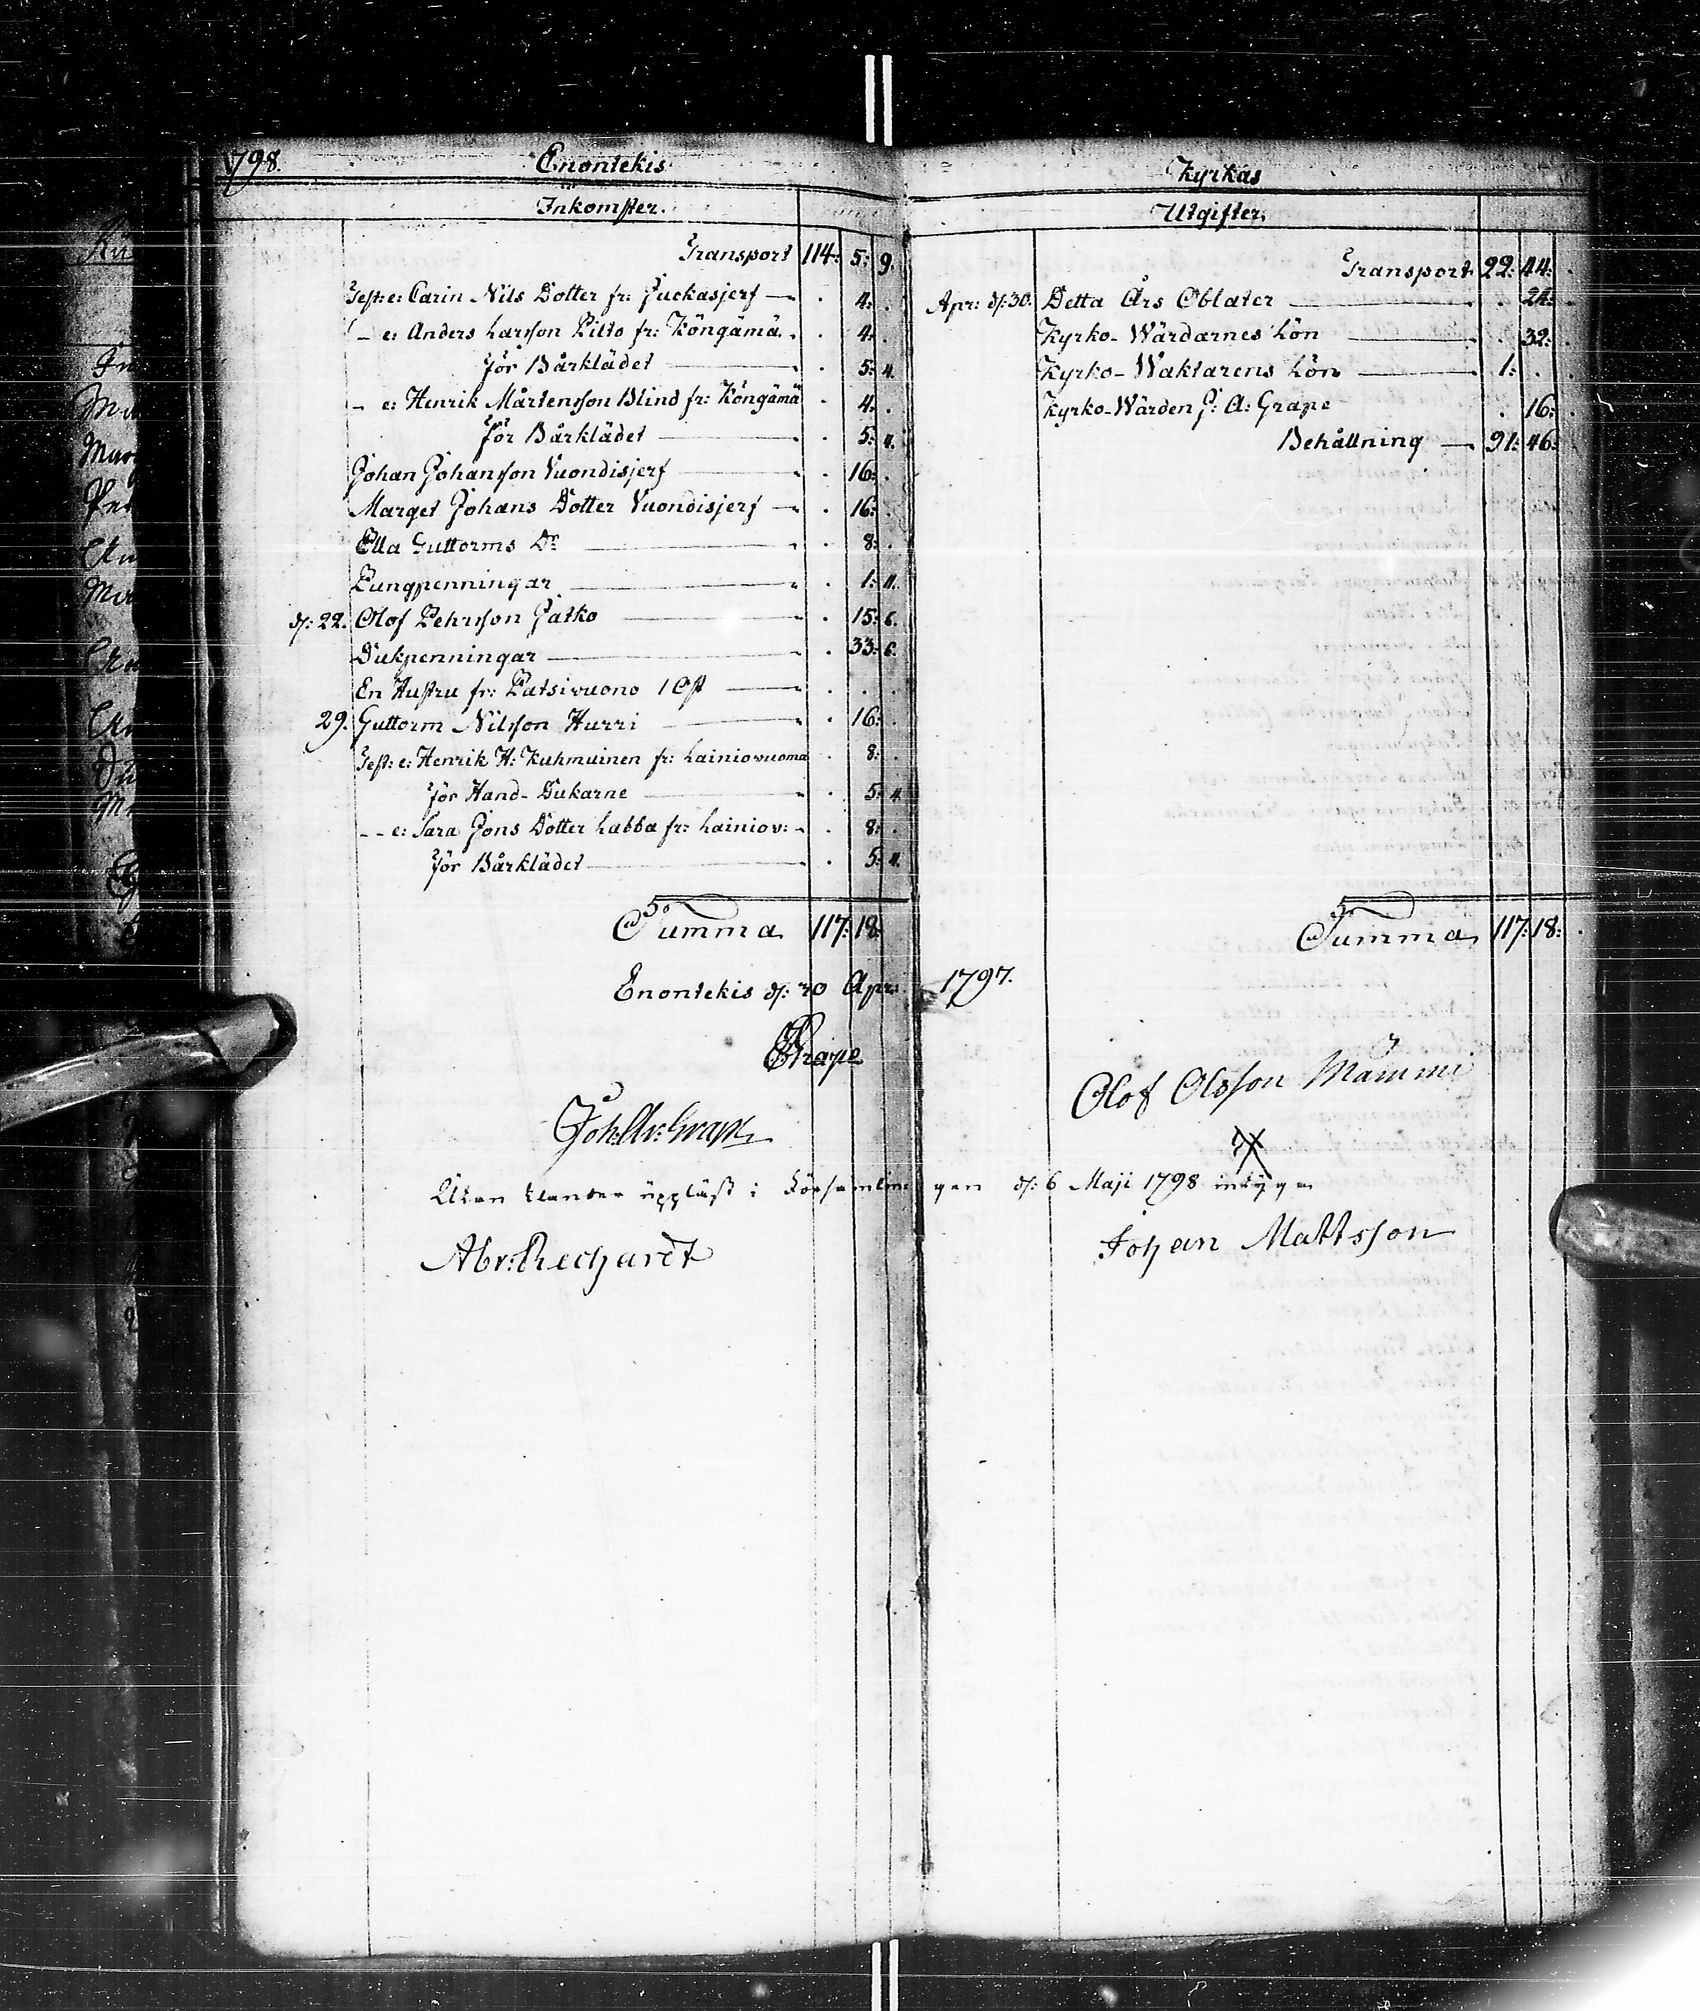 1798. Enontekis
Inkomster.
Transport 114: 5: 9.
Test: e: Carin Nils Dotter fr: Juckasjerf — . 4: .
— e: Anders Larsson Pilto fr: Köngämä. . 4: .
för Bårklädet — . 5: 4.
— e: Henrik Mårtensson Blind fr: Köngämä . 4: .
för Bårklädet — . 5: 4.
Johan Johansson Vuondisjerf — . 16: .
Marget Johans Dotter Vuondisjerf — . 16: .
Ella Guttorms Dr — . 8: .
Pungpenningar — . 1: 11.
d: 22. Olof Pehrsson Patko — . 15: 6.
Dukpenningar — . 33: 6.
En Hustru fr: Patsivuono 1 Ost — . . .
29. Guttorm Nilsson Hurri — . 16: .
Test: e: Henrik H: Kuhmuinen fr: Lainiovuoma . 8: .
för Hand-Dukarne — . 5: 4.
— e: Sara Jons Dotter Labba fr: Lainiov: — . 8: .
för Bårklädet — . 5: 4.
Summa 117: 18:
Kyrkas
Utgifter.
Transport 22: 44: .
Apr: d: 30. Detta Års Oblater — . 24: .
Kyrko-Wärdarnes Lön — . 32: .
Kyrko-Waktarens Lön — 1: . .
Kyrko-Wärden J: A: Grape . 16: .
Behållning — 91: 46: .
Summa 117: 18: .
Enontekis d: 30 Apr: 1797.
EGrape
Joh: Ar: Grape
Olof Olsson Mämmi
Utan klander uppläst i Församlingen d: 6 Maji 1798 intyga
Abr: Rechardt
Johan Mattsson